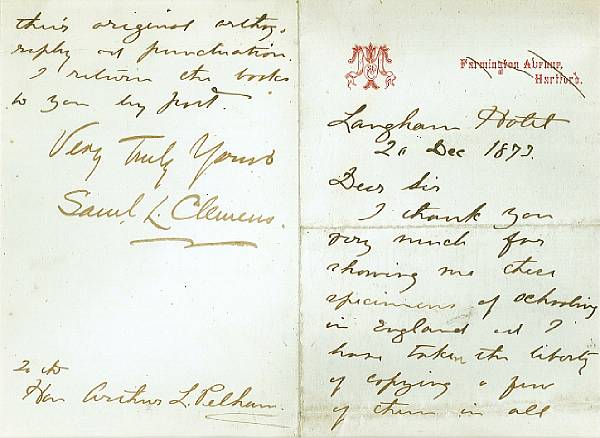 Farmington Avenue,
Hartford.
Langham Hotel
Dec 1873.
Dear Sir
I thank you
very much for
showing me these
specimens of schooling
in England and I
have taken the liberty
of copying a few
of them in all
their original orthog-
raphy and punctuation.
I return the books
to you by post.
Very Truly Yours
Saml. L. Clemens.
To the
Hon Arthur L. Pelham.